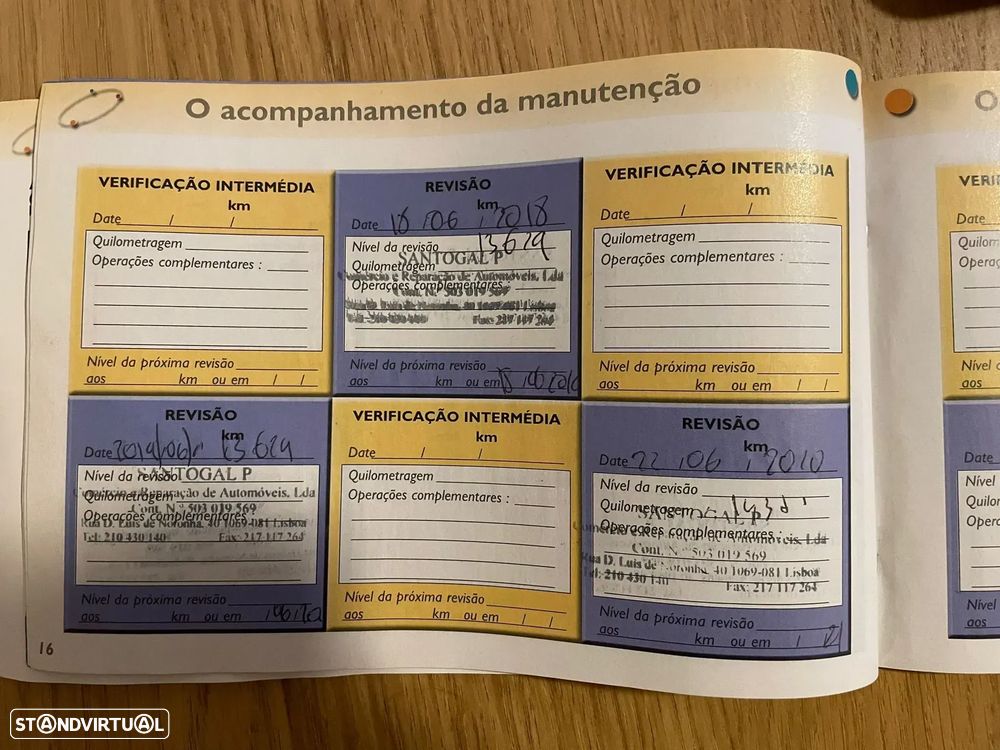 O acompanhamento da manutenção
VERIFICAÇÃO INTERMÉDIA
km
Date / /
Quilometragem
Operações complementares :
Nível da próxima revisão
aos km ou em / /
REVISÃO
km
Date 18 / 06 / 2018
Nível da revisão 13629
SANTOGAL P
Quilometragem
Comércio e Reparação de Automóveis, Lda
Operações complementares :
Cont. N.º 503 019 569
Fax: 217 117 264
Nível da próxima revisão
aos km ou em
VERIFICAÇÃO INTERMÉDIA
km
Date / /
Quilometragem
Operações complementares :
Nível da próxima revisão
aos km ou em / /
REVISÃO
km
Date 2019/06/ 13629
Nível da revisão
SANTOGAL P
Quilometragem
Comércio e Reparação de Automóveis, Lda
Operações complementares :
Cont. N.º 503 019 569
Rua D. Luis de Noronha, 40 1069-081 Lisboa
Tel: 210 430 140 Fax: 217 117 264
Nível da próxima revisão
aos km ou em
VERIFICAÇÃO INTERMÉDIA
km
Date / /
Quilometragem
Operações complementares :
Nível da próxima revisão
aos km ou em / /
REVISÃO
km
Date 22 / 06 / 2020
Nível da revisão
Quilometragem
SANTOGAL P
Operações complementares :
Comércio e Reparação de Automóveis, Lda
Cont. N.º 503 019 569
Rua D. Luis de Noronha, 40 1069-081 Lisboa
Tel: 210 430 140 Fax: 217 117 264
Nível da próxima revisão
aos km ou em / 21
16
O
VERI
Date
Quilom
Operaç
Nível
aos
Date
Níve
Qui
Op
Nível
aos
STANDVIRTUAL